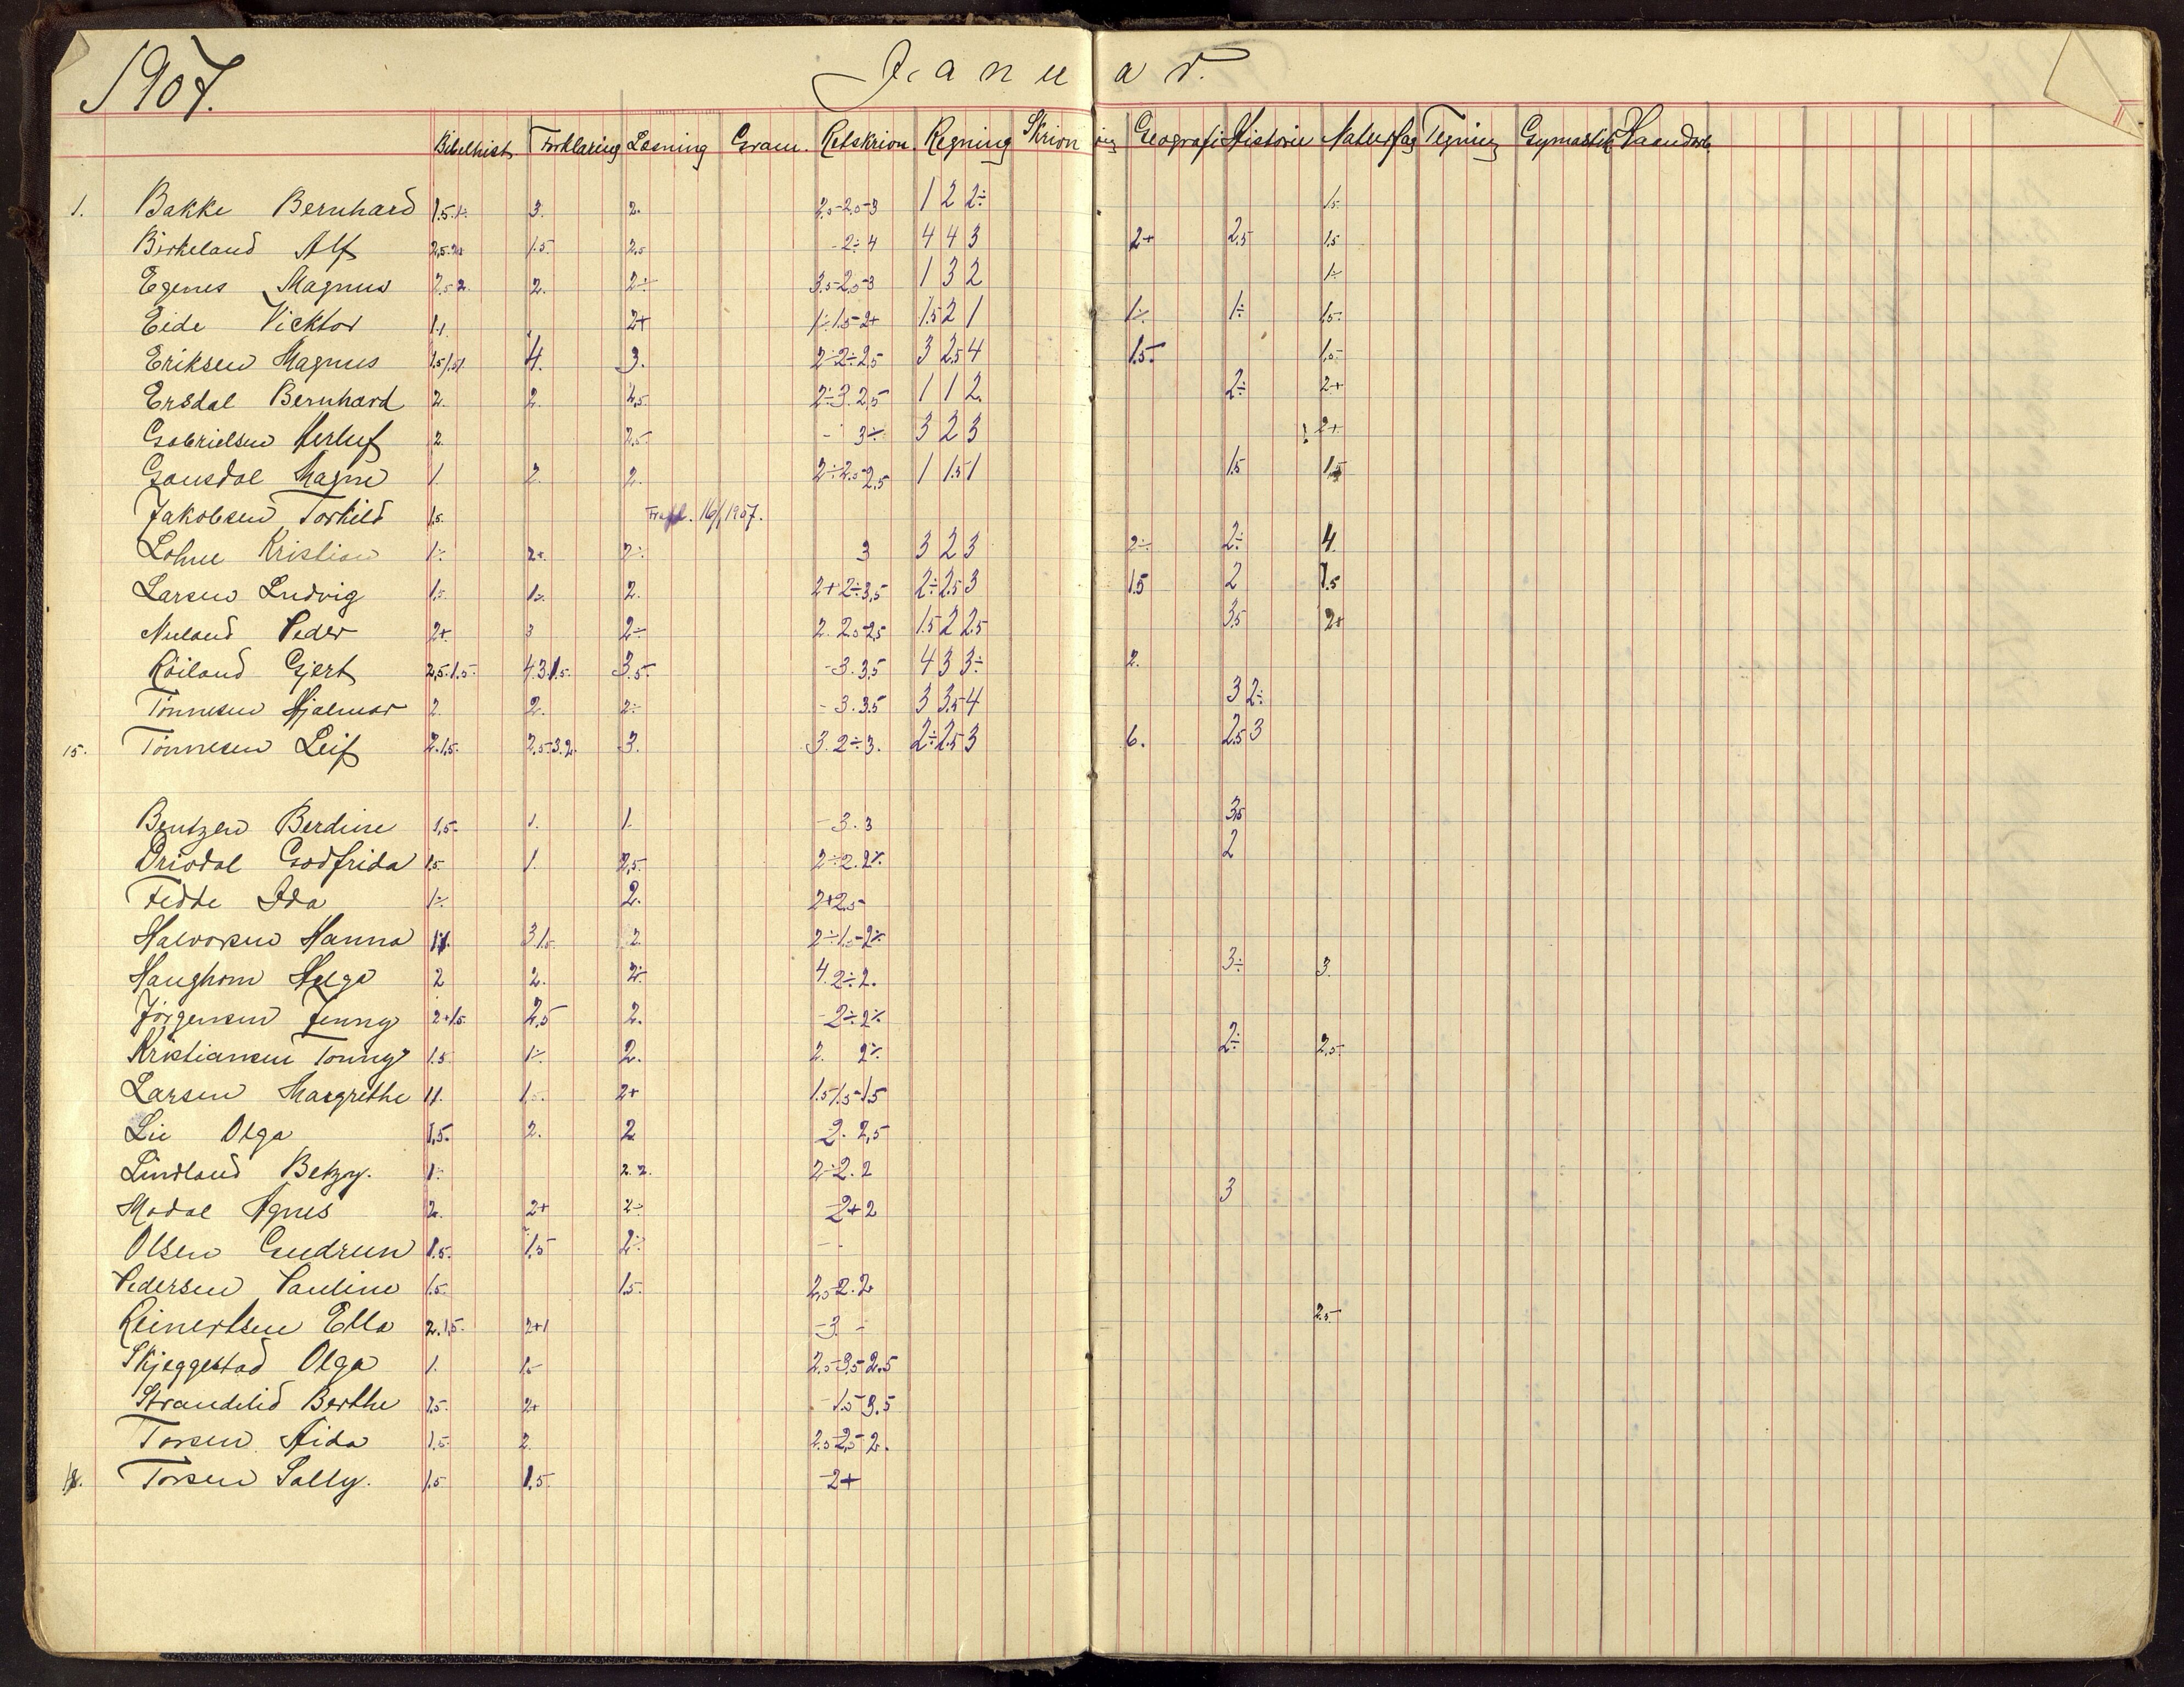 1907. Januar.
Bibelhist. Forklaring Læsning Gram. Retskrivn. Regning Skrivning Geografi Historie Naturfag Tegning Gymastik Haandarb.
1. Bakke Bernhard 1.5.1÷ 3. 2. 2.5-2.5-3 1 2 2÷ 1.5
Birkeland Alf 2,5.2+ 1.5 2.5 -2÷4 4 4 3 2+ 2.5 1.5
Egenes Magnus 2.5 2. 2. 2÷ 3.5-2.5-3 1 3 2 1÷
Eide Vicktor 1.1 2+ 1÷1.5-2+ 1.5 2 1 1÷ 1÷ 1.5
Eriksen Magnus 4. 3. 2÷2÷2,5 3 2.5 4 1.5 1.5
Ersdal Bernhard 2. 2. 2.5 2÷3.2,5 1 1 2. 2÷ 2+
Gabrielsen Herluf 2. 2.5 - 3÷ 3 2 3 2+
Gausdal Magne 1. 2. 2. 2÷2.5-2,5 1 1.5 1 1.5 1.5
Jakobsen Torkild 1.5 Frafl. 16/1 1907.
Lohne Kristian 1÷ 2+ 2÷ 3 3 2 3 2÷ 2÷ 4.
Larsen Ludvig 1.5 1÷ 2. 2+2÷3,5 2÷2.5 3 1.5 2 1.5
Nuland Peder 2+ 3 2÷ 2. 2.5-2,5 1.5 2 2.5 3.5 2+
Röiland Gjert 2,5.1.5 4.3.1.5. 3.5. -3.3,5 4 3 3÷ 2.
Tönnesen Hjalmar 2. 2. 2÷ -3.3.5 3 3.5 4 3 2÷
15. Tönnesen Leif 2.1.5. 2.5.3.2. 3. 3.2÷3. 2÷2.5 3 6. 2.5 3
Bentzen Berdine 1,5. 1. 1. -3.3 3.5
Drivdal Godfrida 1.5 1. 2,5. 2÷2.2÷ 2
Fedde Ida 1÷ 2. 2+2.5
Halvorsen Hanna 3.1.5. 2. 2÷1.5-2÷
Haughom Helga 2 2. 2÷ 4.2÷2. 3÷ 3.
Jörgensen Jenny 2+1.5. 2,5 2. -2÷2÷
Kristiansen Tonny 1.5 1÷ 2. 2. 2÷ 2÷ 2.5
Larsen Margrethe 1.1. 1.5. 2+ 1.5 1.5-1.5
Lie Olga 1,5. 2. 2 2. 2,5
Lindland Betzy. 1÷ 2.2. 2÷2.2
Modal Agnes 2. 2+ 2÷ 2+2 3
Olsen Gudrun 1.5. 1,5 2÷ - -
Pedersen Pauline 1.5 1.5. 2,5-2.2
Reinertsen Ella 2.1,5. 2+1 -3. - 2.5
Skjeggestad Olga 1. 1.5 2.5-3,5-2.5
Strandelid Berthe 2+ -1.5-3.5
Torsen Aida 1.5. 2. 2.5-2,5-2.
18. Torsen Sally. 1.5 1.5. -2+